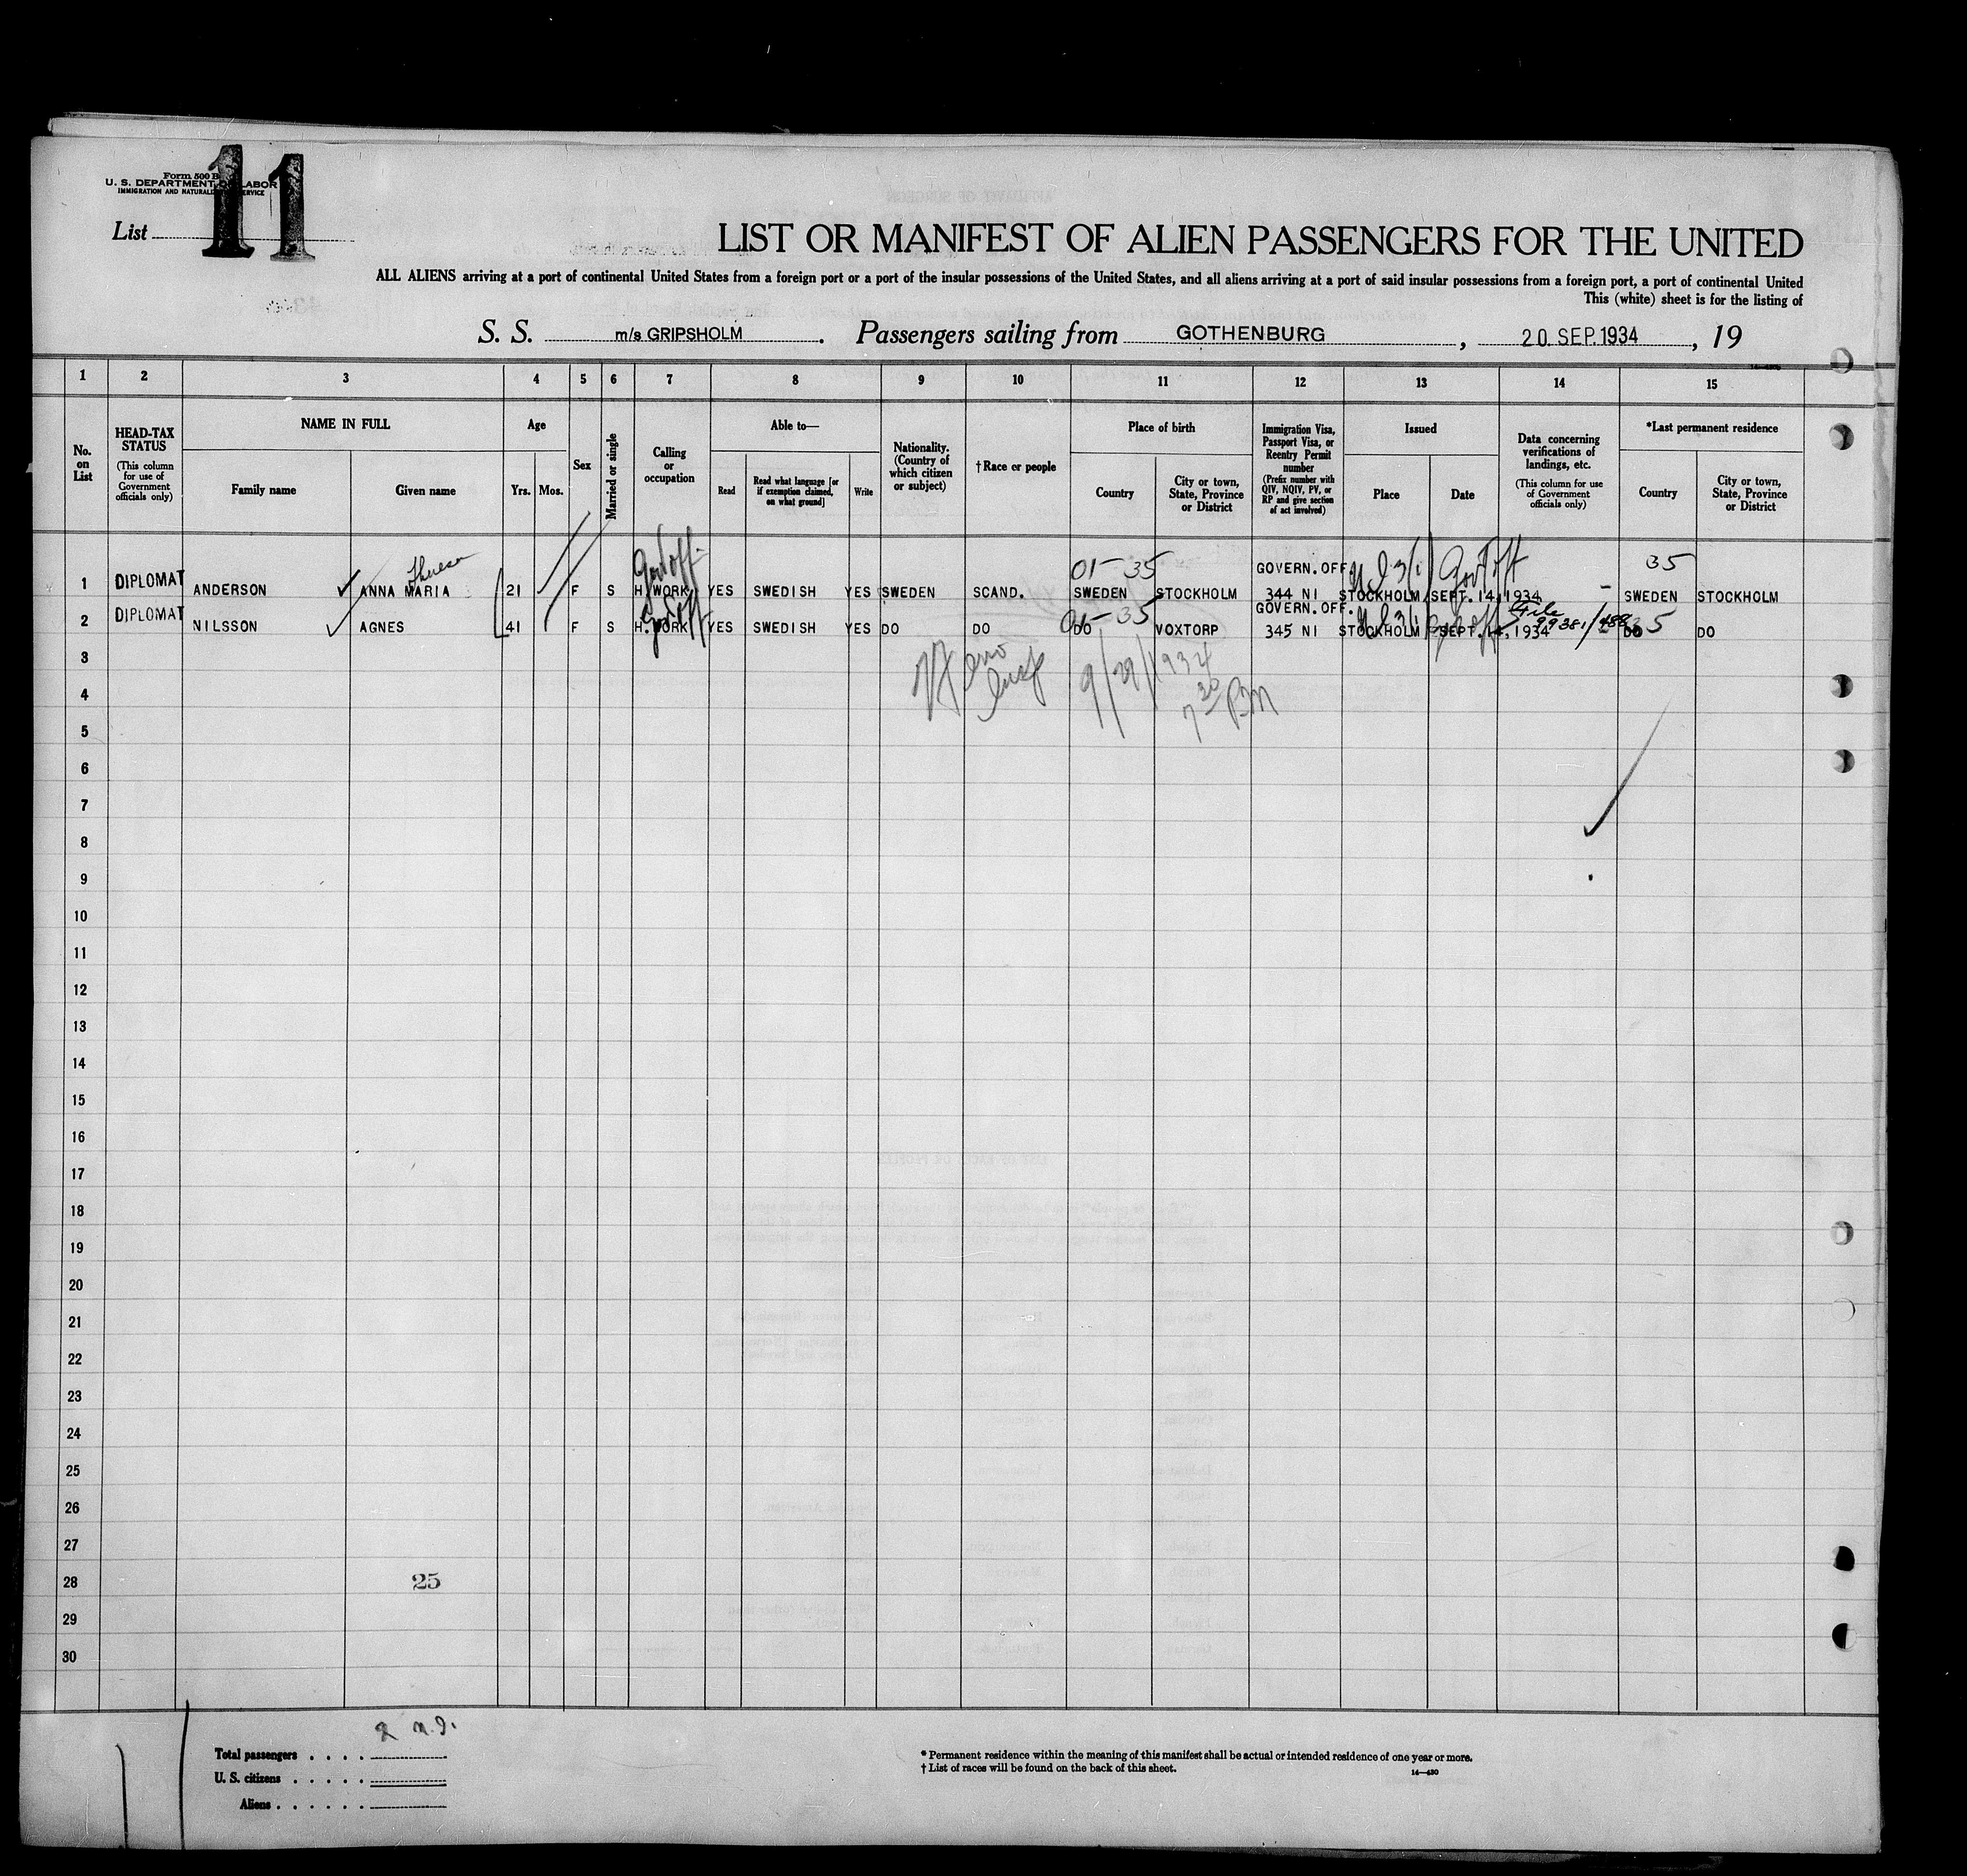 Form 500 B
U. S. DEPARTMENT OF LABOR
IMMIGRATION AND NATURALIZATION SERVICE
List 11
LIST OR MANIFEST OF ALIEN PASSENGERS FOR THE UNITED
ALL ALIENS arriving at a port of continental United States from a foreign port or a port of the insular possessions of the United States, and all aliens arriving at a port of said insular possessions from a foreign port, a port of continental United
This (white) sheet is for the listing of
S. S. m/s GRIPSHOLM. Passengers sailing from GOTHENBURG, 20 SEP. 1934, 19
1 2 3 4 5 6 7 8 9 10 11 12 13 14 15
No. on List
HEAD-TAX STATUS
(This column for use of Government officials only)
NAME IN FULL
Family name
Given name
Age
Yrs.
Mos.
Sex
Married or single
Calling or occupation
Able to—
Read
Read what language [or if exemption claimed, on what ground]
Write
Nationality. (Country of which citizen or subject)
†Race or people
Place of birth
Country
City or town, State, Province or District
Immigration Visa, Passport Visa, or Reentry Permit number
(Prefix number with QIV, NQIV, PV, or RP and give section of act involved)
Issued
Place
Date
Data concerning verifications of landings, etc.
(This column for use of Government officials only)
*Last permanent residence
Country
City or town, State, Province or District
Theresa
Govt off.
01-35
GOVERN. OFF.
3(1)
Govt off
35
1 DIPLOMAT ANDERSON ANNA MARIA 21 F S H. WORK YES SWEDISH YES SWEDEN SCAND. SWEDEN STOCKHOLM 344 NI STOCKHOLM SEPT. 14, 1934 SWEDEN STOCKHOLM
Govt off
01-35
GOVERN. OFF.
3(1)
Govt off
File 99381/488
35
2 DIPLOMAT NILSSON AGNES 41 F S H. WORK YES SWEDISH YES DO DO DO VOXTORP 345 NI STOCKHOLM SEPT. 14, 1934 DO DO
3
9/29/1934
7 30 PM
4
5
6
7
8
9
10
11
12
13
14
15
16
17
18
19
20
21
22
23
24
25
26
27
28 25
29
30
Total passengers
U. S. citizens
Aliens
* Permanent residence within the meaning of this manifest shall be actual or intended residence of one year or more.
† List of races will be found on the back of this sheet.
14—430